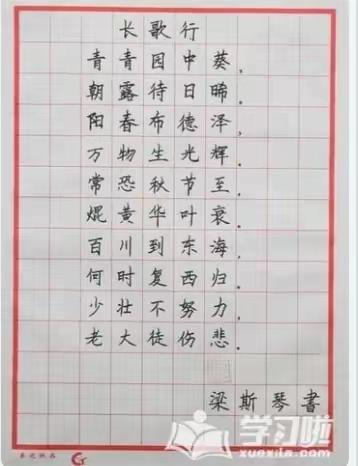 长歌行
青青园中葵，
朝露待日晞。
阳春布德泽，
万物生光辉。
常恐秋节至，
焜黄华叶衰。
百川到东海，
何时复西归。
少壮不努力，
老大徒伤悲。
梁斯琴書
学习啦
xuexila.com